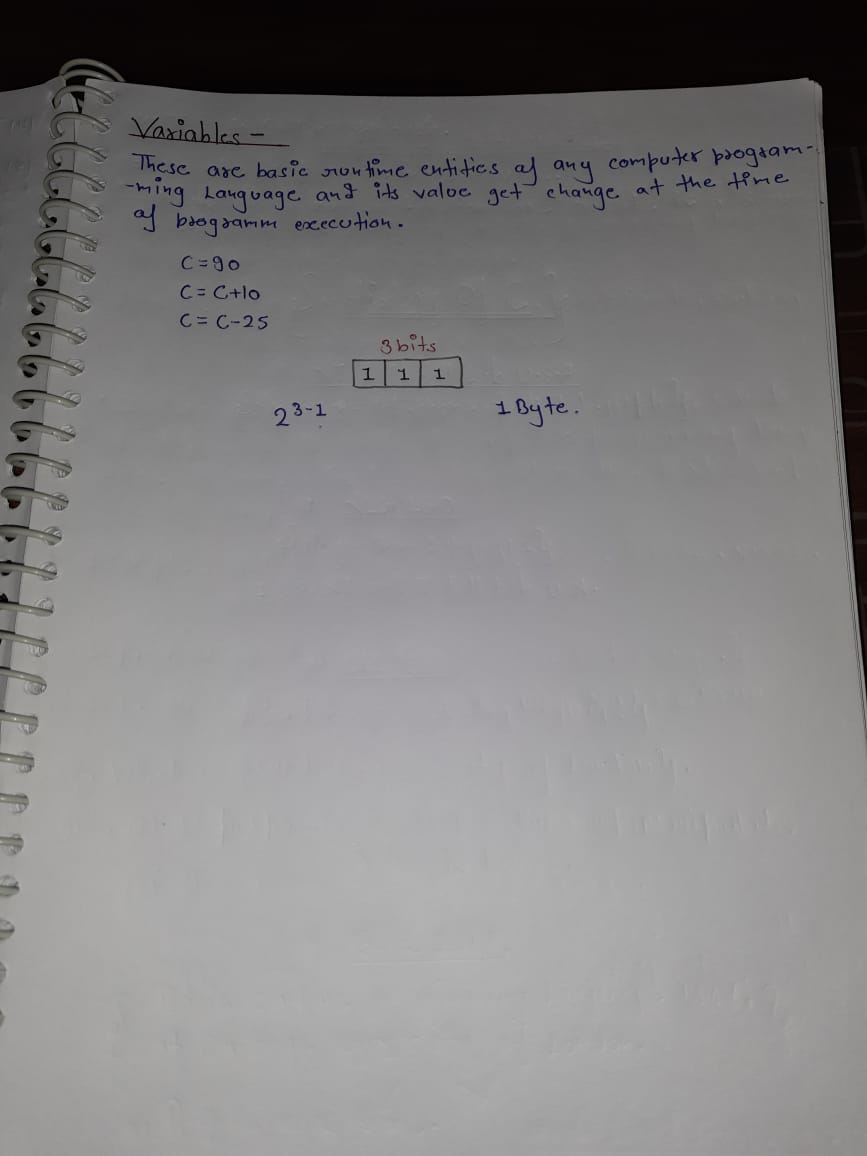 Variables -
These are basic runtime entities of any computer program-
-ming Language and its value get change at the time
of programm execution.
C = 90
C = C+10
C = C-25
3 bits
1 1 1
2^3-1 1 Byte.